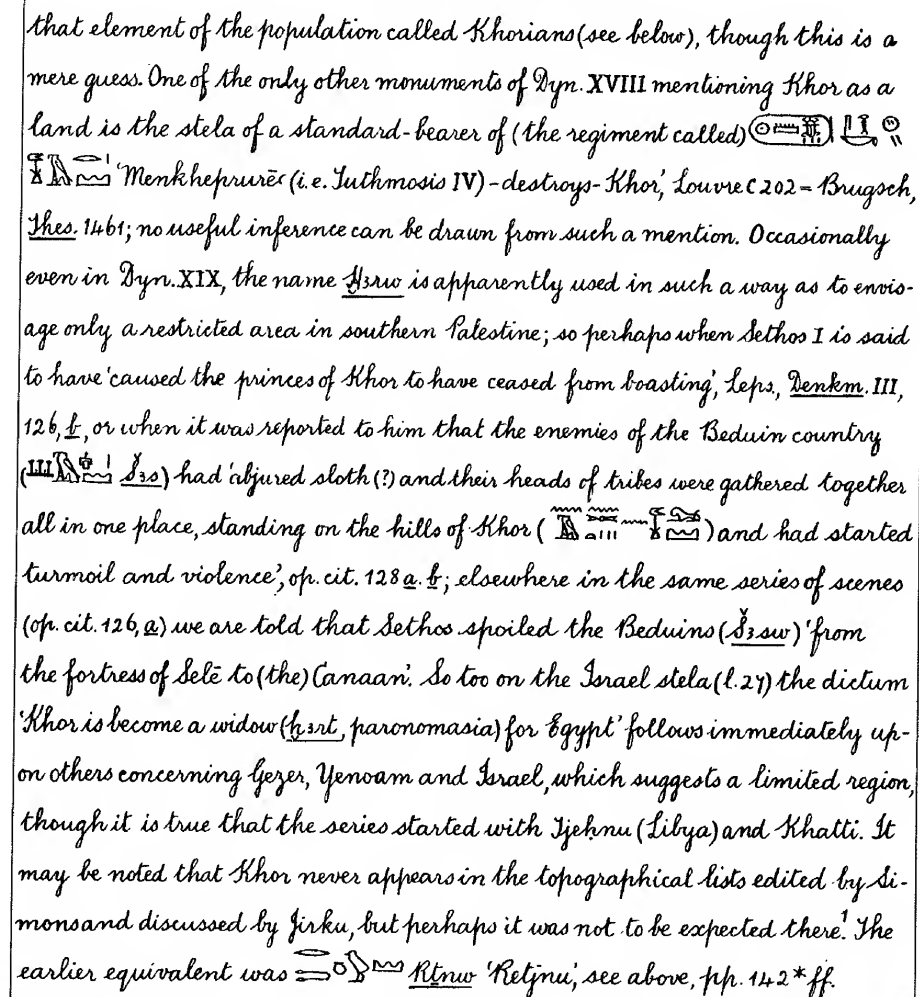 that element of the population called Khorians (see below), though this is a
mere guess. One of the only other monuments of Dyn. XVIII mentioning Khor as a
land is the stela of a standard-bearer of (the regiment called)
'Menkheprurēꜥ (i.e. Tuthmosis IV) - destroys - Khor', Louvre C 202 = Brugsch,
Thes. 1461; no useful inference can be drawn from such a mention. Occasionally
even in Dyn. XIX, the name Ḫꜣrw is apparently used in such a way as to envis-
age only a restricted area in southern Palestine; so perhaps when Sethos I is said
to have 'caused the princes of Khor to have ceased from boasting', Leps., Denkm. III,
126, b, or when it was reported to him that the enemies of the Beduin country
( Šꜣs) had 'abjured sloth (?) and their heads of tribes were gathered together
all in one place, standing on the hills of Khor ( ) and had started
turmoil and violence', op. cit. 128 a. b; elsewhere in the same series of scenes
(op. cit. 126, a) we are told that Sethos spoiled the Beduins (Šꜣsw) 'from
the fortress of Selē to (the) Canaan'. So too on the Israel stela (l. 27) the dictum
'Khor is become a widow (ḫꜣrt, paronomasia) for Egypt' follows immediately up-
on others concerning Gezer, Yenoam and Israel, which suggests a limited region,
though it is true that the series started with Tjeḥnu (Libya) and Khatti. It
may be noted that Khor never appears in the topographical lists edited by Si-
mons and discussed by Jirku, but perhaps it was not to be expected there.¹ The
earlier equivalent was Rṯnw 'Retjnu', see above, pp. 142* ff.